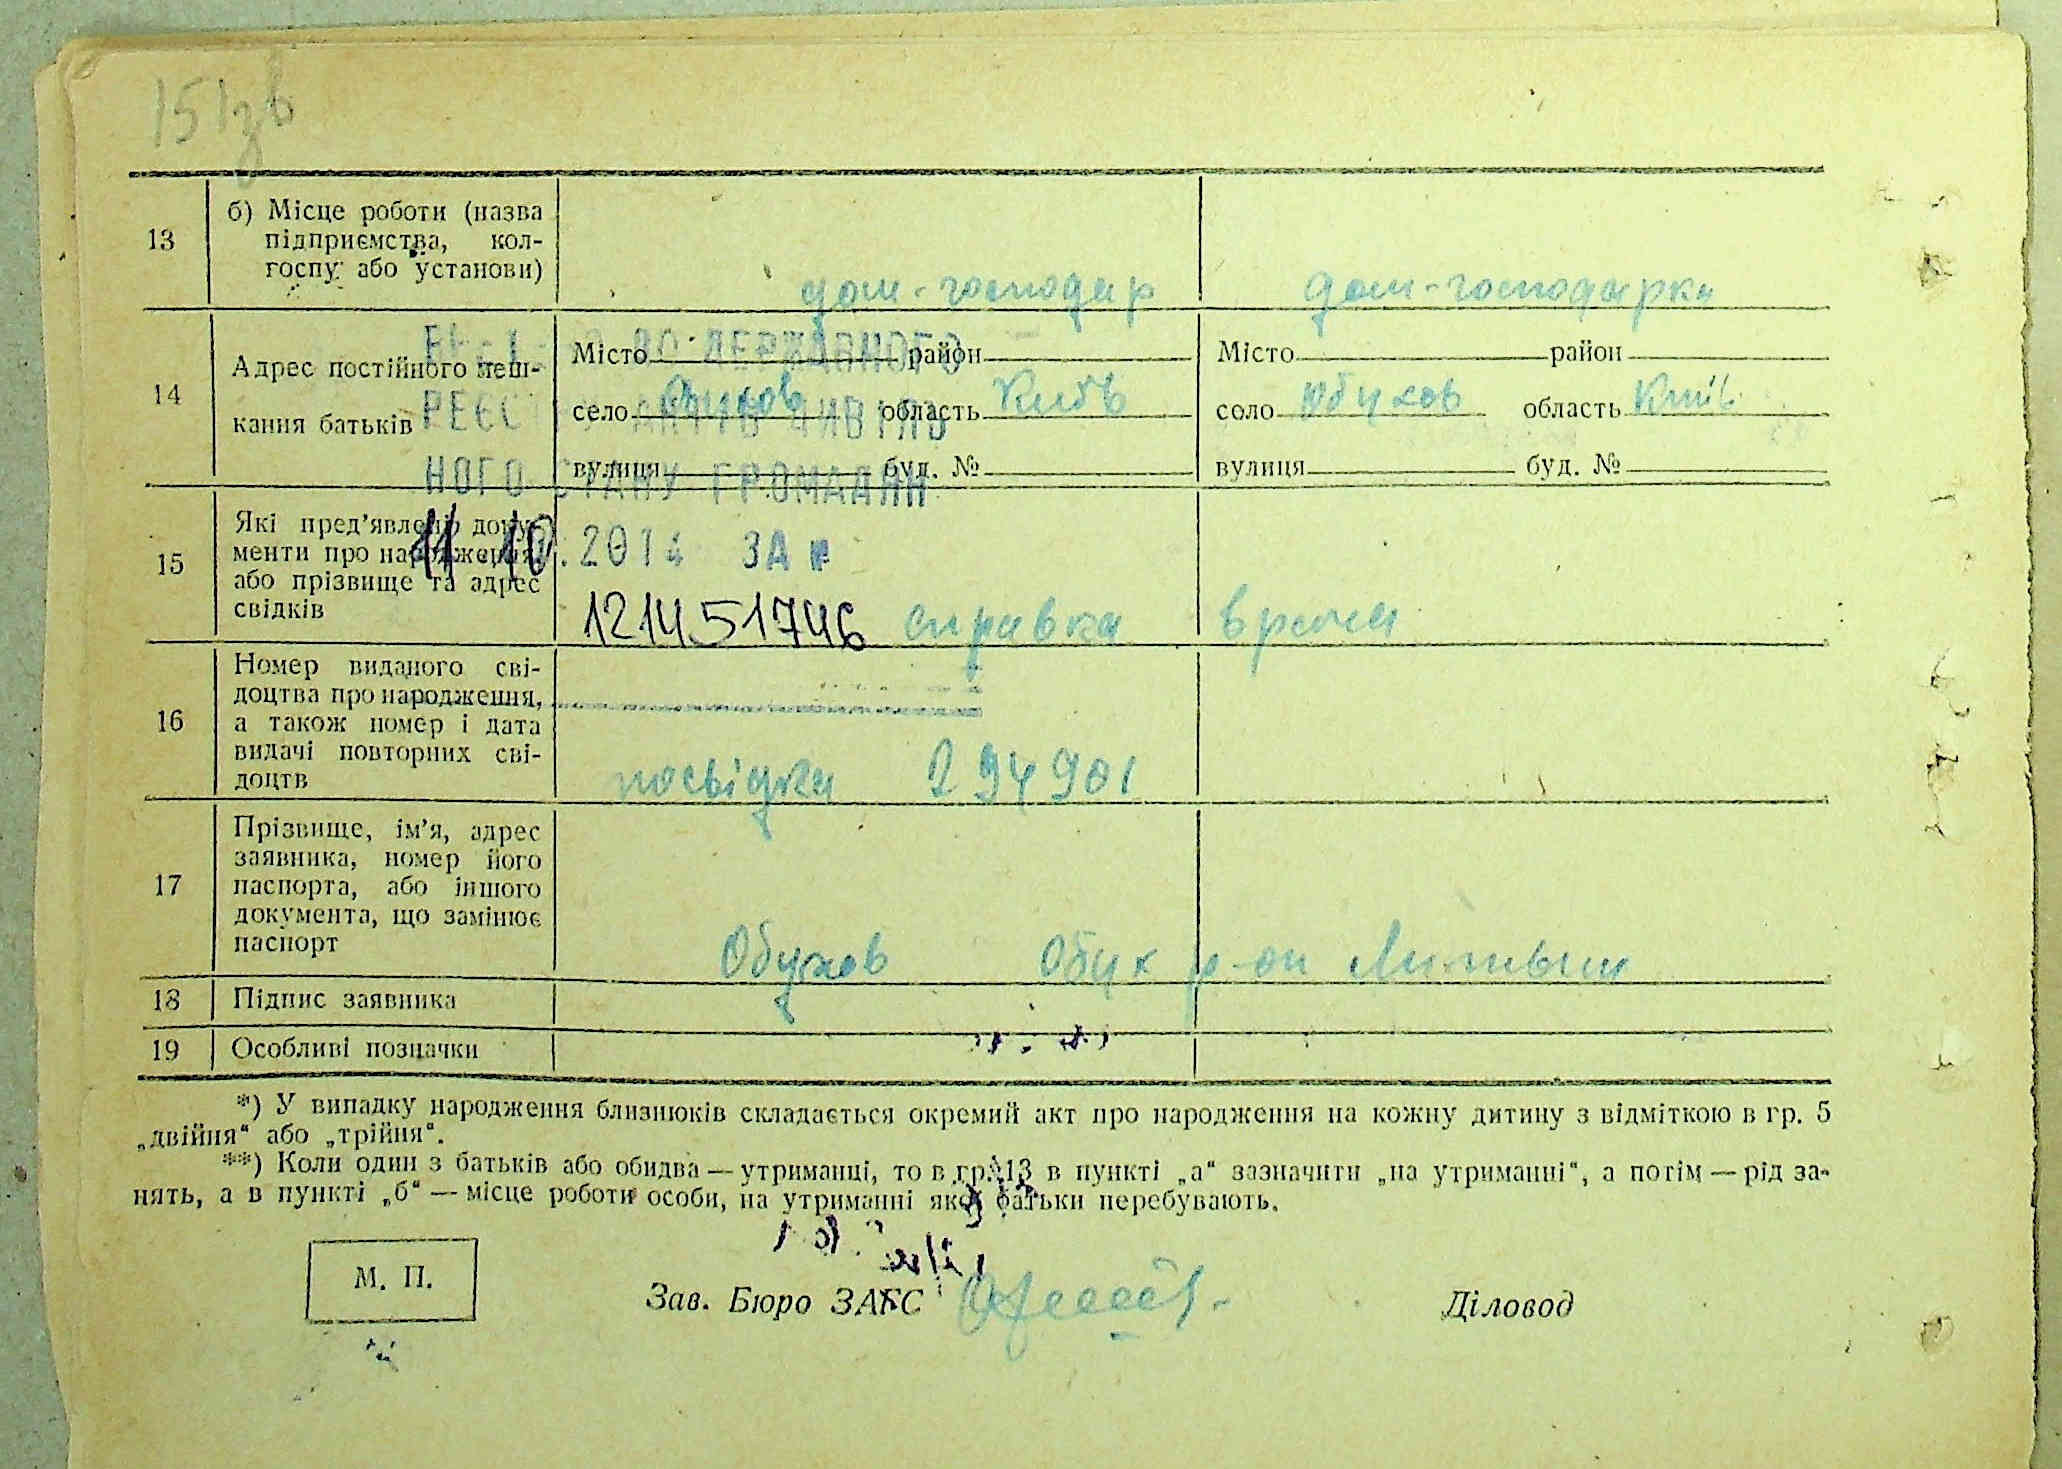 151зв
13
б) Місце роботи (назва
підприємства, кол-
госпу або установи)
дом-господар
дом-господарка
14
Адрес постійного меш-
кання батьків
Місто район
село Обухов область Київ
вулиця буд. №
Місто район
село Обухов область Київ
вулиця буд. №
ДО ДЕРЖАВНОГО
РЕЄСТРУ АКТІВ ЦИВІЛЬ
НОГО СТАНУ ГРОМАДЯН
11.10.2014 ЗА №
121451746
15
Які пред’явлено доку-
менти про народження
або прізвище та адрес
свідків
справка врача
16
Номер виданого сві-
доцтва про народження,
а також номер і дата
видачі повторних сві-
доцтв
посвідка 294901
17
Прізвище, ім’я, адрес
заявника, номер його
паспорта, або іншого
документа, що замінює
паспорт
Обухов Обух р-он
18
Підпис заявника
19
Особливі позначки
*) У випадку народження близнюків складається окремий акт про народження на кожну дитину з відміткою в гр. 5
„двійня“ або „трійня“.
**) Коли один з батьків або обидва — утриманці, то в гр. 13 в пункті „а“ зазначити „на утриманні“, а потім — рід за-
нять, а в пункті „б“ — місце роботи особи, на утриманні якої батьки перебувають.
М. П.
Зав. Бюро ЗАГС
Діловод